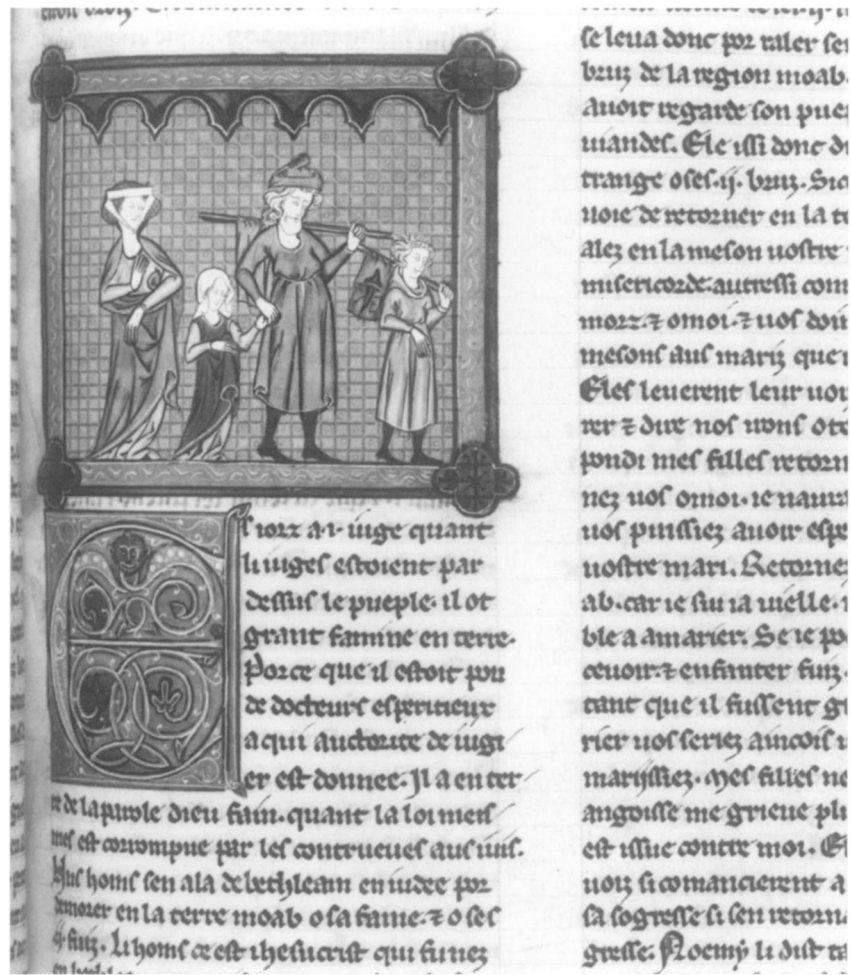 Es iorz a .i. iuge quant
li iuges estoient par
dessus le pueple. il ot
grant famine en terre.
Por ce que il estoit pou
de docteurs esperitieux
a qui auctorite de iugi
er est donnee. Il a en ter
re de la parole dieu fain. quant la loi meis
mes est corrompue par les contrueues aus iuis.
Uns homs sen ala de bethleam en iudee por
demorer en la terre moab o sa fame. ⁊ o ses
.ij. fiuz. Li homs ce est ihesucrist qui fu nez
se leua donc por raler
bruz de la region moab.
auoit regarde son
uiandes. Ele issi donc
trange o ses .ij. bruz.
uoie de retorner en la
alez en la meson uostre
misericorde. autressi com
morz. ⁊ o moi. ⁊ uos
mesons aus mariz que
Eles leuerent leur
rer ⁊ dire nos irons
pondi mes filles
nez uos o moi. ie
uos puissiez auoir
uostre mari.
ab. car ie sui ia uielle.
ble a amarier. Se ie
ceuoir. ⁊ enfanter fiuz.
tant que il fussent
rier uos seriez aincois
marissiez. Mes filles
angoisse me grieue
est issue contre moi.
uoiz si comancierent a
sa sogresse si sen
gresse. Noemy li dist